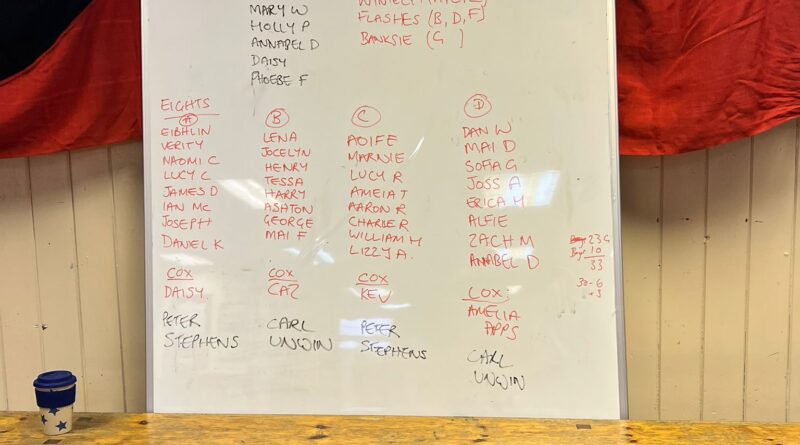 MARY W
HOLLY P
ANNABEL D
DAISY
PHOEBE F
FLASHES (B, D, F)
BANKSIE (G )
EIGHTS
A
EIBHLIN
VERITY
NAOMI C
LUCY C
JAMES D
IAN MC
JOSEPH
DANIEL K
COX
DAISY
PETER
STEPHENS
B
LENA
JOCELYN
HENRY
TESSA
HARRY
ASHTON
GEORGE
MAI F
COX
CAZ
CARL
UNWIN
C
AOIFE
MARNIE
LUCY R
AMEIA T
AARON R
CHARLIE R
WILLIAM M
LIZZY A.
COX
KEV
PETER
STEPHENS
D
DAN W
MAI D
SOFIA G
JOSS A
ERICA M
ALFIE
ZACH M
ANABEL D
COX:
AMELIA
APPS
CARL
UNWIN
23 G
10
33
30-6
+3